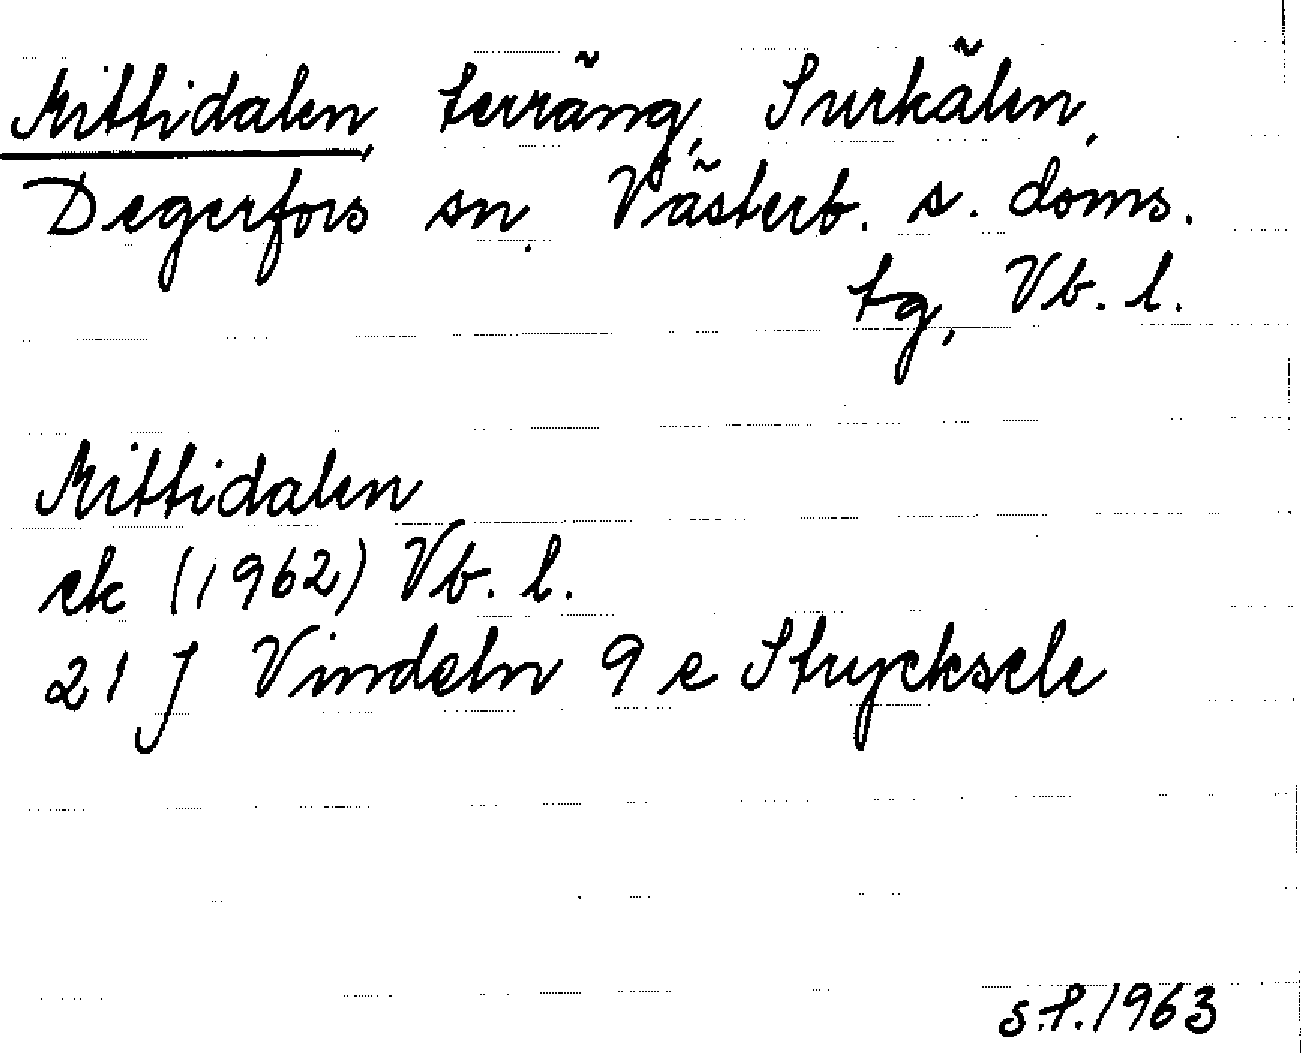 Mittidalen, terräng, Surkälen,
Degerfors sn. Västerb. s. doms.
tg, Vb. l.
Mittidalen
ek (1962) Vb. l.
21 J Vindeln 9 e Strycksele
S.F. 1963